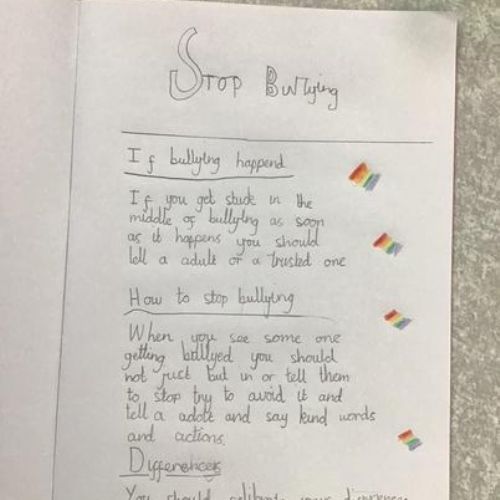 Stop Bullying
If bullying happend
If you get stuck in the
middle of bullying as soon
as it happens you should
tell a adult or a trusted one
How to stop bullying
When you see some one
getting bullyed you should
not just but in or tell them
to stop try to avoid it and
tell a adote and say kind words
and actions.
Differences
You should